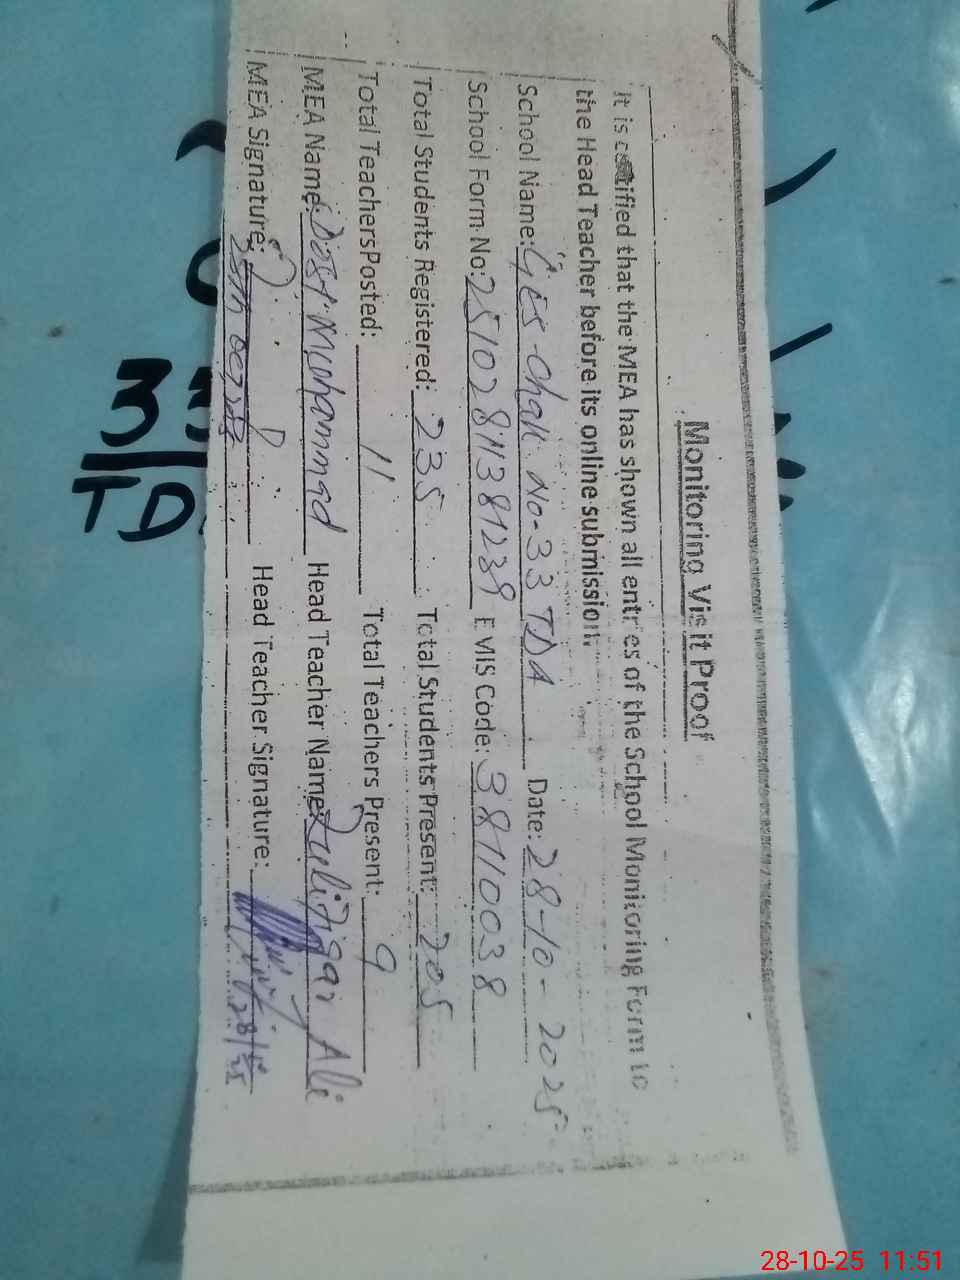 Monitoring Visit Proof
It is certified that the MEA has shown all entries of the School Monitoring Form to
the Head Teacher before its online submission.
School Name: GES Chak No-33 TDA Date: 28-10-2025
School Form No: 25102811381239 EMIS Code: 38110038
Total Students Registered: 235 Total Students Present: 205
Total Teachers Posted: 11 Total Teachers Present: 9
MEA Name: Dost Muhammad Head Teacher Name: Zulifqar Ali
MEA Signature: 28th Oct, 25 Head Teacher Signature:
33
TDA
28-10-25 11:51